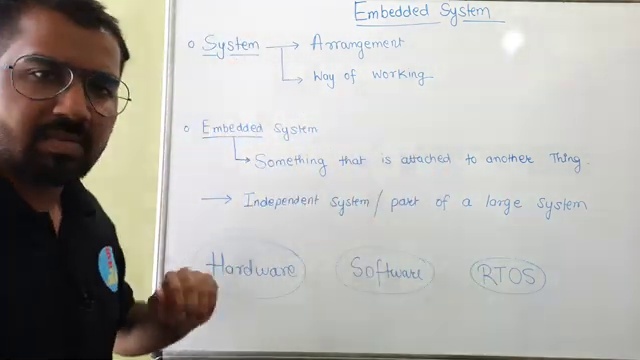 Embedded System
System → Arrangement
Way of working
Embedded System
Something that is attached to another Thing.
→ Independent system / part of a large system
Hardware Software RTOS